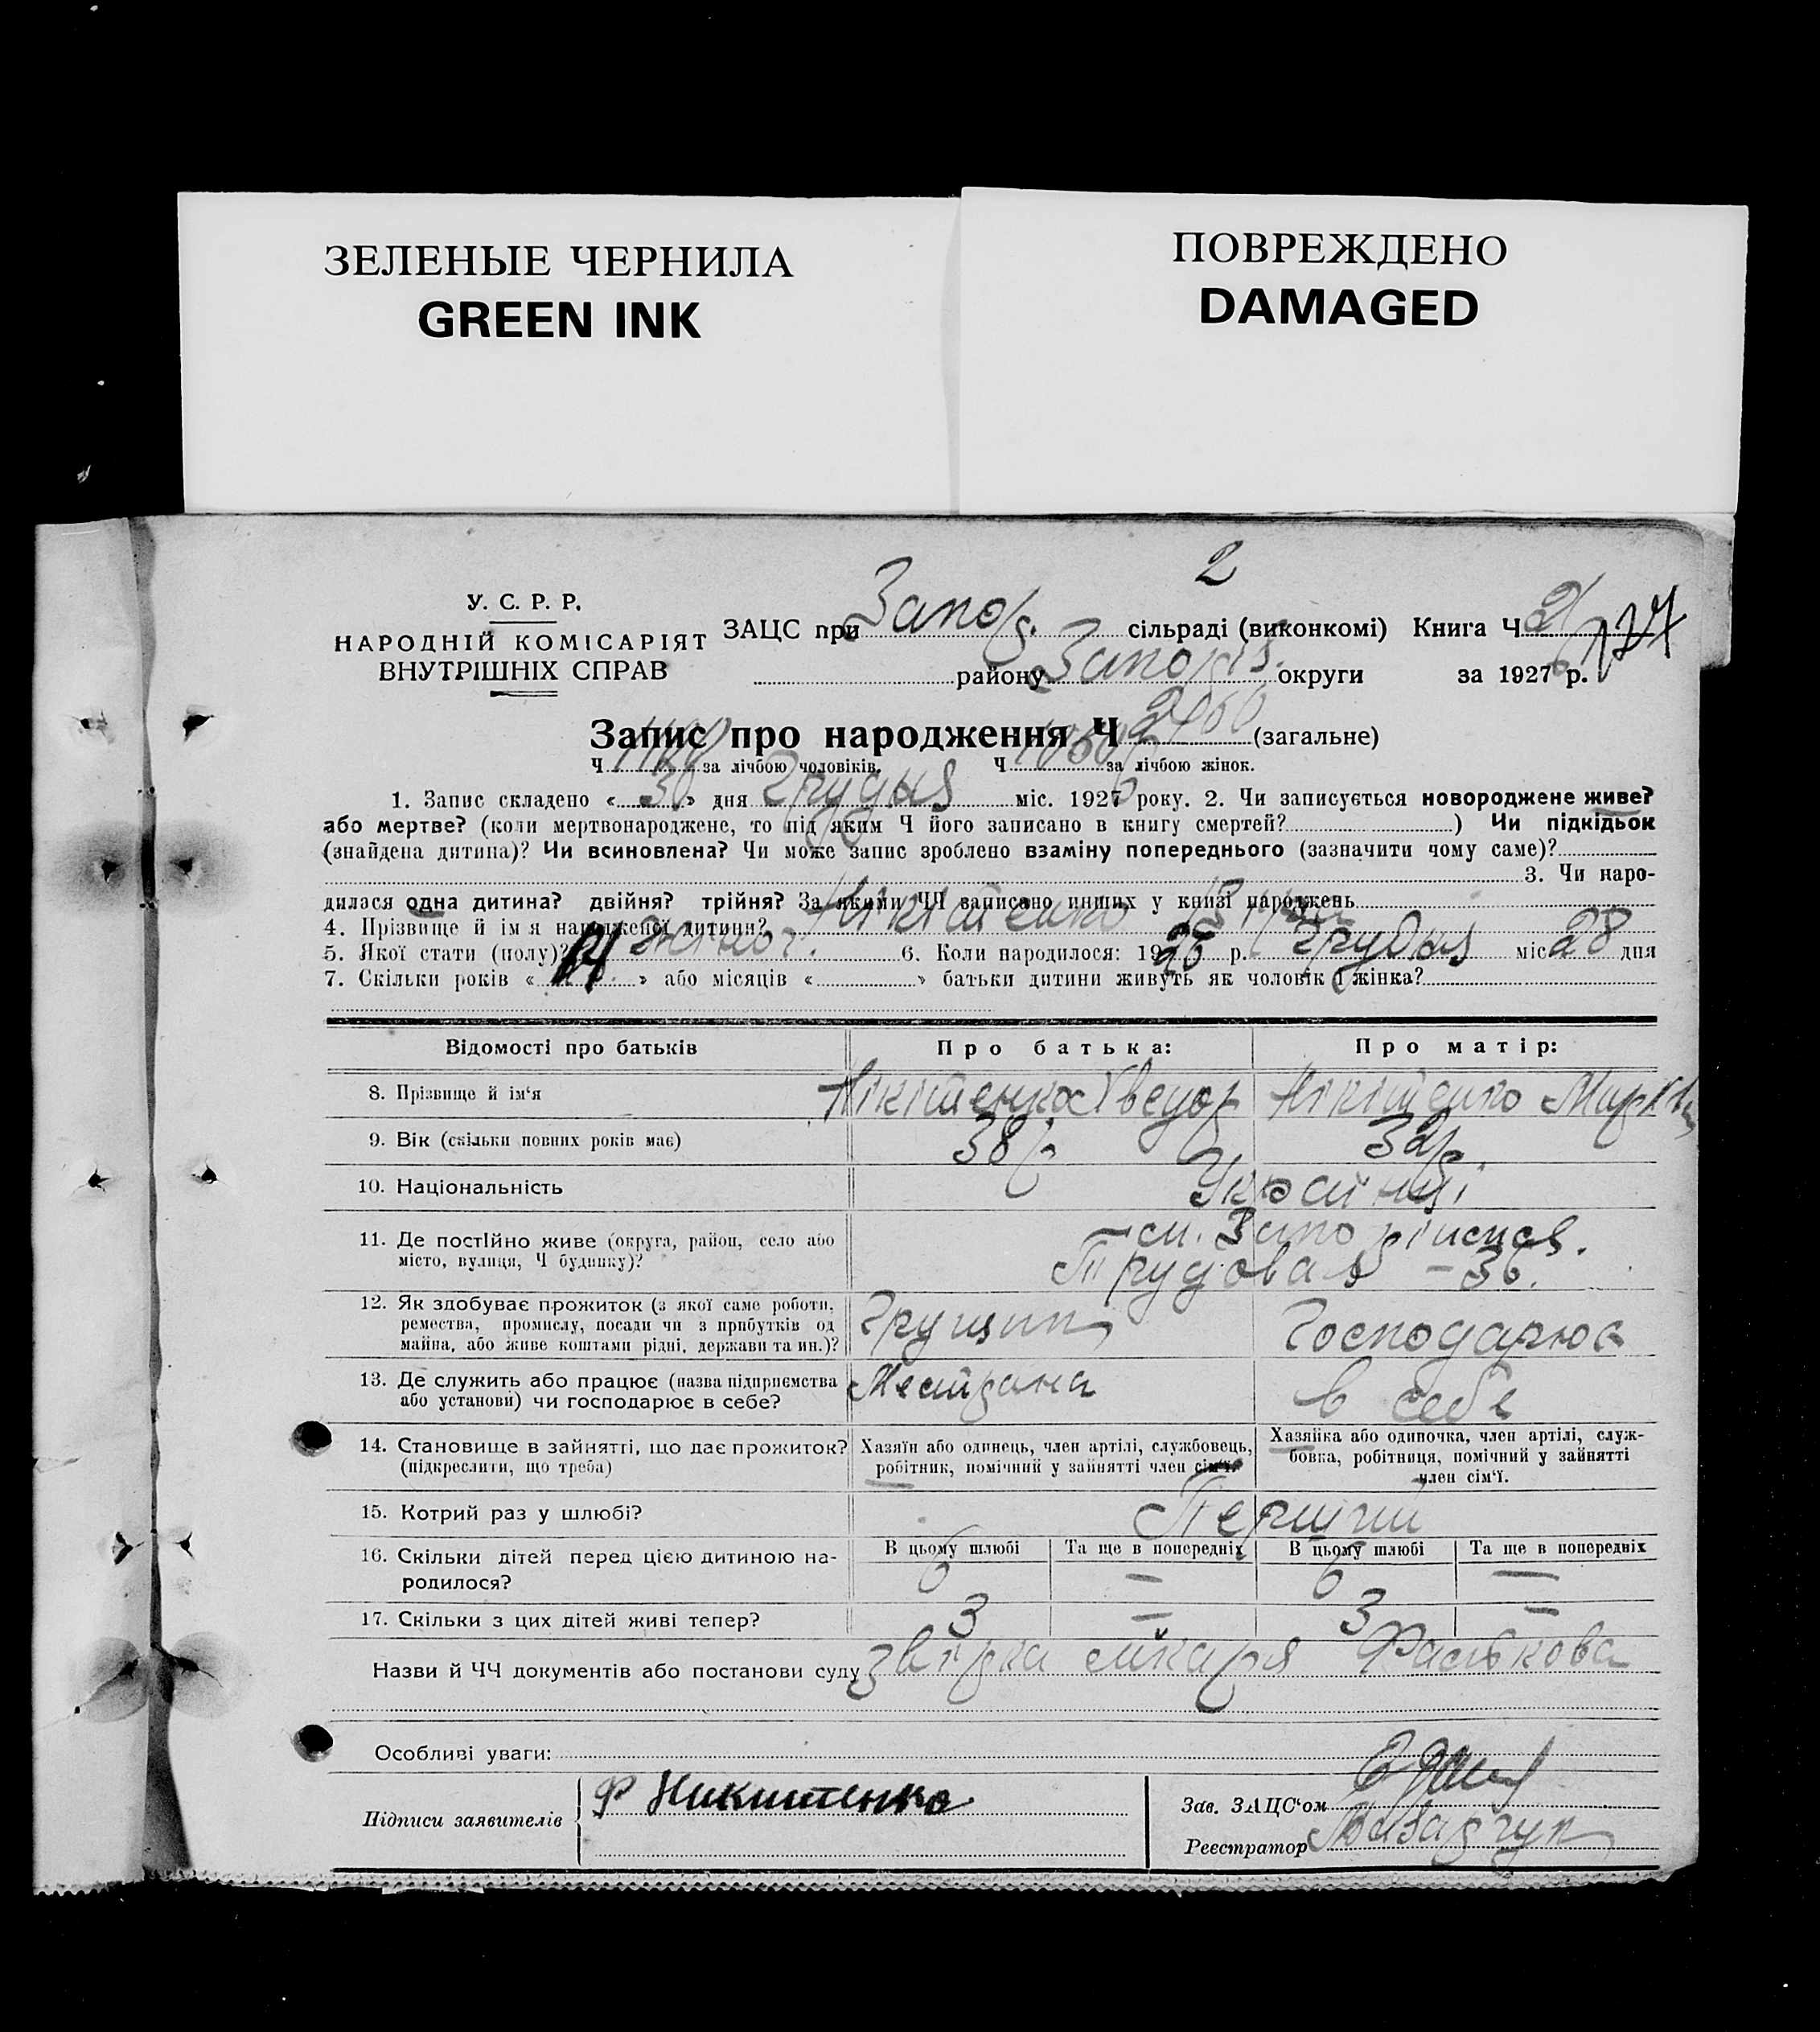 ЗЕЛЕНЫЕ ЧЕРНИЛА
GREEN INK
ПОВРЕЖДЕНО
DAMAGED
2
У. С. Р. Р.
НАРОДНІЙ КОМІСАРІЯТ
ВНУТРІШНІХ СПРАВ
ЗАЦС при Запор. сільраді (виконкомі) Книга Ч
району Запоріз. округи за 1927 р.
Запис про народження Ч 2460 (загальне)
Ч за лічбою чоловіків. Ч за лічбою жінок.
1. Запис складено « 30 » дня Грудня міс. 1927 року. 2. Чи записується новороджене живе?
або мертве? (коли мертвонароджене, то під яким Ч його записано в книгу смертей? ) Чи підкідьок
(знайдена дитина)? Чи всиновлена? Чи може запис зроблено взаміну попереднього (зазначити чому саме)?
3. Чи наро-
дилася одна дитина? двійня? трійня? За якими ЧЧ записано инших у книзі народжень
4. Прізвище й ім'я народженої дитини? Нікітенко
5. Якої стати (полу)? Жіноч. 6. Коли народилося: 1926 р. Грудня міс 28 дня
7. Скільки років « 14 » або місяців « » батьки дитини живуть як чоловік і жінка?
Відомості про батьків Про батька: Про матір:
8. Прізвище й ім'я Нікітенко Хведор Нікітенко Марія
9. Вік (скільки повних років має) 38 р. 32 р.
10. Національність Українці
11. Де постійно живе (округа, район, село або
місто, вулиця, Ч будинку)?
м. Запоріжжя.
Трудовая – 36.
12. Як здобуває прожиток (з якої саме роботи,
ремества, промислу, посади чи з прибутків од
майна, або живе коштами рідні, держави та ин.)?
Грущик Господарює
13. Де служить або працює (назва підприємства
або установи) чи господарює в себе?
в себе
14. Становище в зайнятті, що дає прожиток?
(підкреслити, що треба)
Хазяїн або одинець, член артілі, службовець,
робітник, помічний у зайнятті член сім'ї.
Хазяйка або одиночка, член артілі, служ-
бовка, робітниця, помічний у зайнятті
член сім'ї.
15. Котрий раз у шлюбі? Перший
16. Скільки дітей перед цією дитиною на-
родилося?
В цьому шлюбі Та ще в попередніх В цьому шлюбі Та ще в попередніх
6 — 6 —
17. Скільки з цих дітей живі тепер? 3 — 3 —
Назви й ЧЧ документів або постанови суду
Особливі уваги:
Підписи заявителів Ф Никитенко
Зав. ЗАЦС'ом
Реєстратор